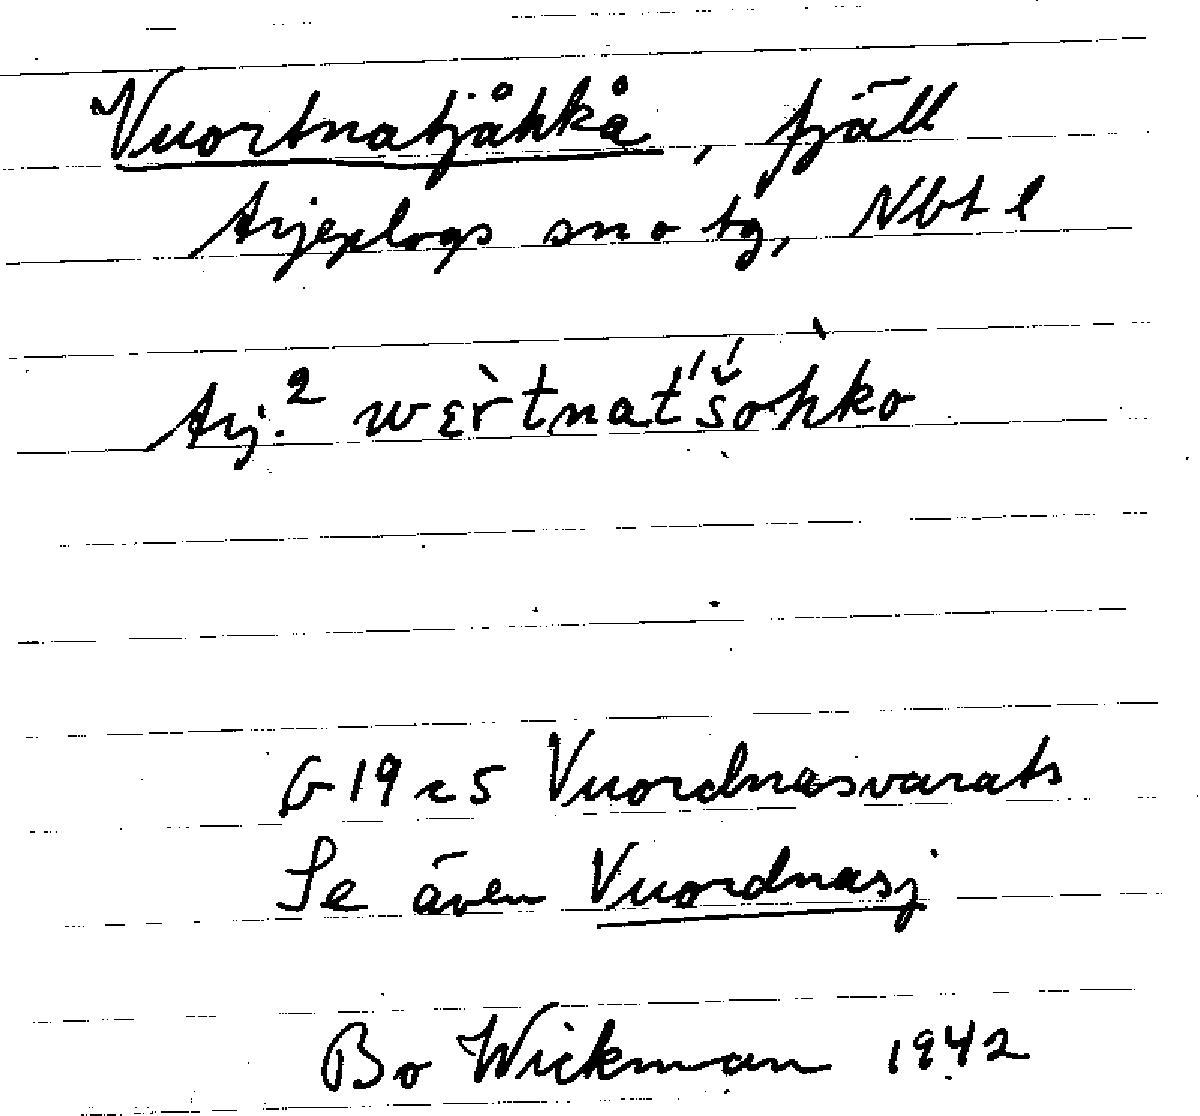 Vuortnatjåhkå, fjäll
Arjeplogs sn o tg, Nbt l
Arj.² wɛr̀tnatʹšʹohko
G 19 c 5 Vuordnasvarats
Se även Vuordnasj
Bo Wickman 1942